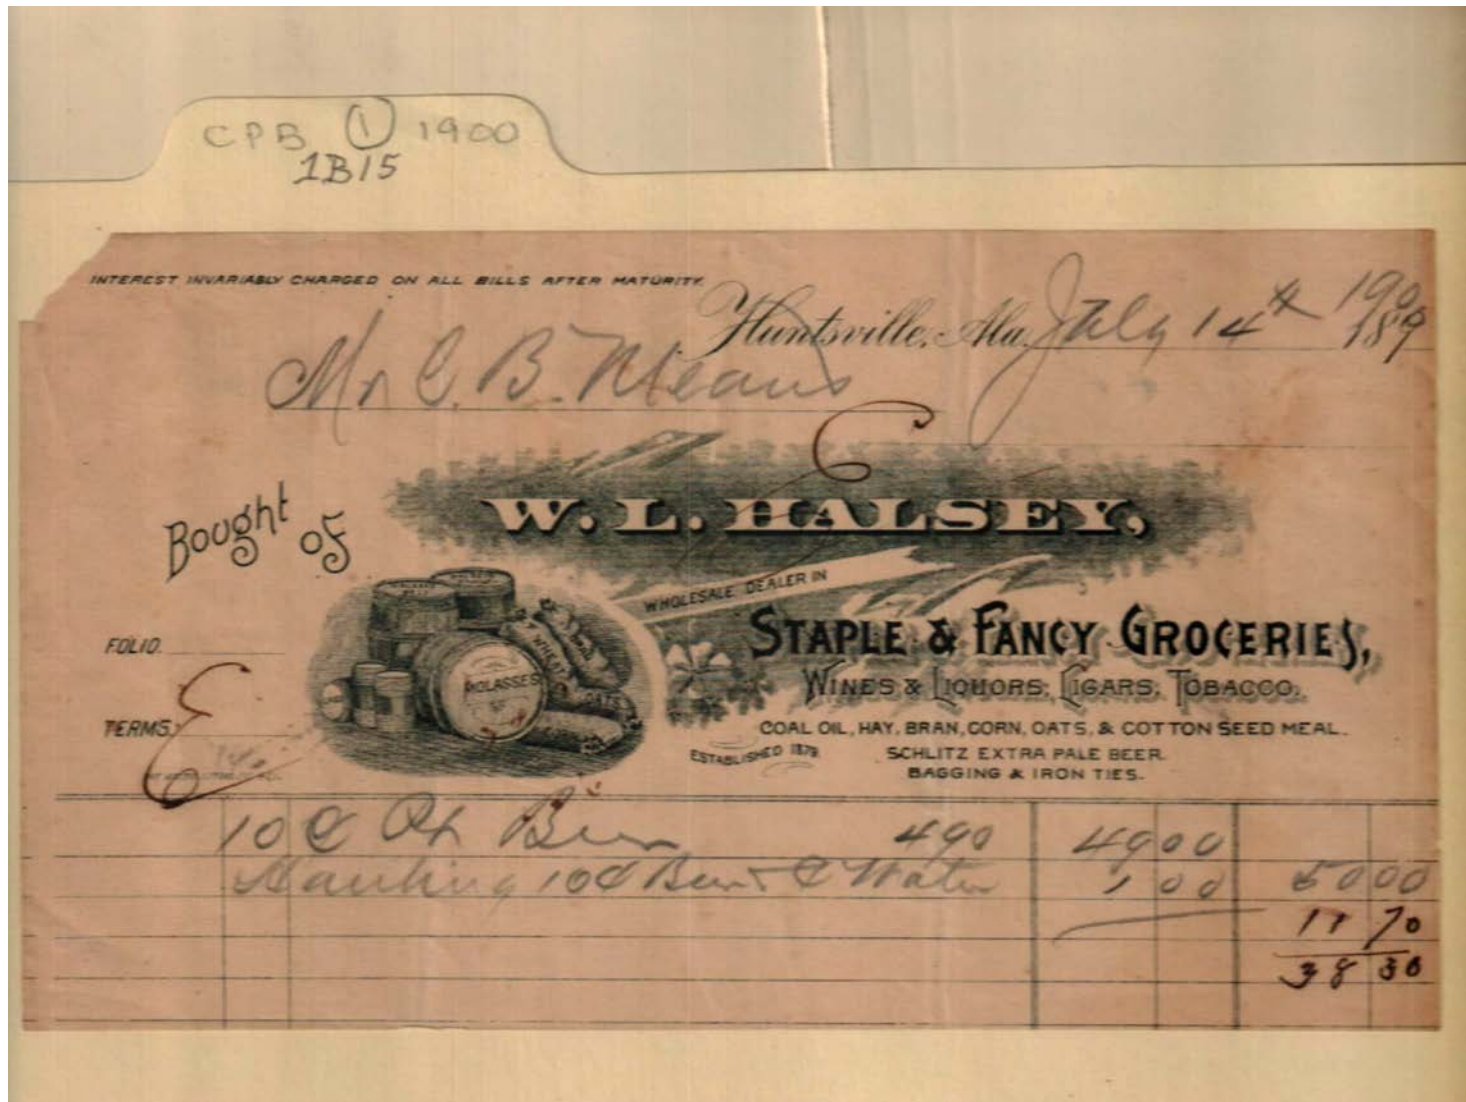 CPB 1 1900
1B15
INTEREST INVARIABLY CHARGED ON ALL BILLS AFTER MATURITY.
Huntsville, Ala. July 14th 1900
189
Mr C. B. Means
Bought of
W. L. HALSEY,
WHOLESALE DEALER IN
STAPLE & FANCY GROCERIES,
WINES & LIQUORS, CIGARS, TOBACCO.
COAL OIL, HAY, BRAN, CORN, OATS, & COTTON SEED MEAL.
ESTABLISHED 1879
SCHLITZ EXTRA PALE BEER.
BAGGING & IRON TIES.
FOLIO.
TERMS.
MOLASSES
WHEAT
OATS
10 C Pt Beer 490 49 00
Hauling 10 C Beer & C Water 1 00 50 00
11 70
38 30